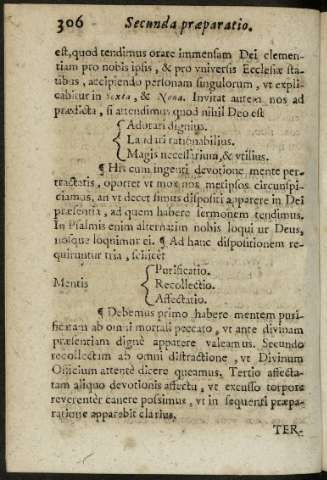 306 Secunda præparatio.
est, quod tendimus orare immensam Dei clemen-
tiam pro nobis ipsis, & pro vniversis Ecclesiæ sta-
tibus, accipiendo personam singulorum, vt expli-
cabitur in Sexta, & Nona. Invitat autem nos ad
prædicta, si attendimus quod nihil Deo est
Adorari dignius.
Laudari rationabilius.
Magis necessarium, & vtilius.
¶ His cum ingenti devotione mente per-
tractatis, oportet vt mox nos metipsos circunspi-
ciamus, an vt decet simus dispositi apparere in Dei
præsentia, ad quem habere sermonem tendimus.
In Psalmis enim alternatim nobis loquitur Deus,
nosque loquimur ei. ¶ Ad hanc dispositionem re-
quiruntur tria, scilicet
Mentis
Purificatio.
Recollectio.
Affectatio.
¶ Debemus primo habere mentem puri-
ficatam ab omni mortali peccato, vt ante divinam
præsentiam dignè apparere valeamus. Secundo
recollectam ab omni distractione, vt Divinum
Officium attentè dicere queamus. Tertio affecta-
tam aliquo devotionis affectu, vt excusso torpore
reverentèr canere possimus, vt in sequenti præpa-
ratione apparebit clarius.
TER-